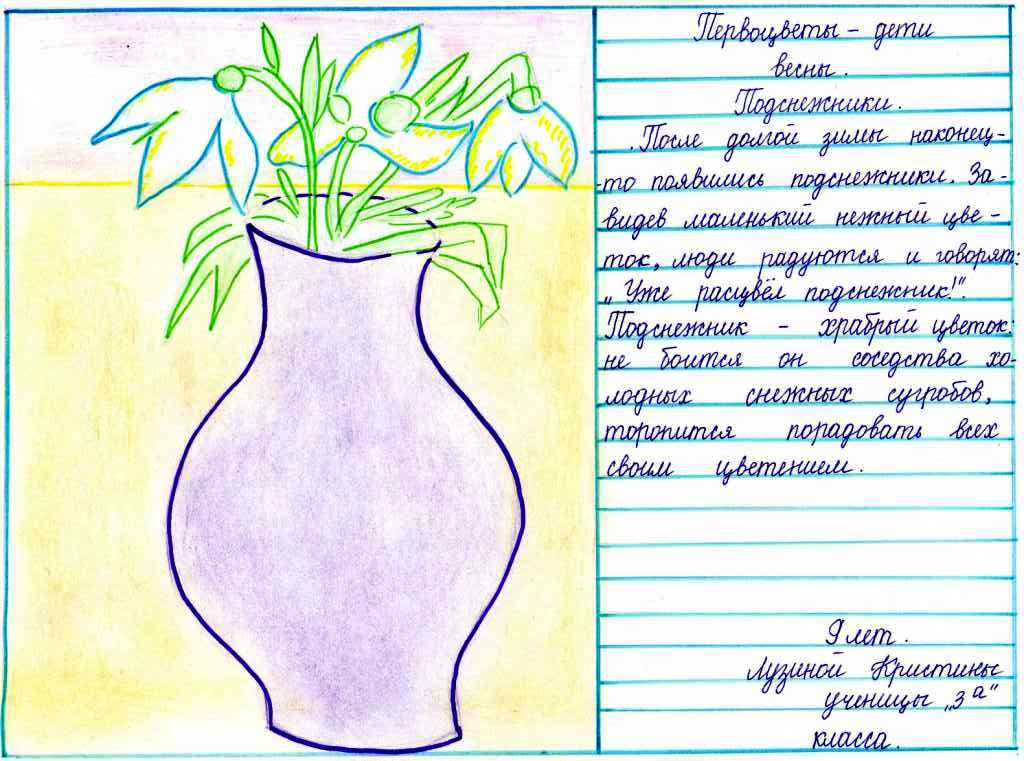 Первоцветы – дети
весны.
Подснежники.
.После долгой зимы наконец-
-то появились подснежники. За-
видев маленький нежный цве-
ток, люди радуются и говорят:
„Уже расцвёл подснежник!".
Подснежник – храбрый цветок:
не боится он соседства хо-
лодных снежных сугробов,
торопится порадовать всех
своим цветением.
9 лет.
Лузиной Кристины
ученицы „3а"
класса.